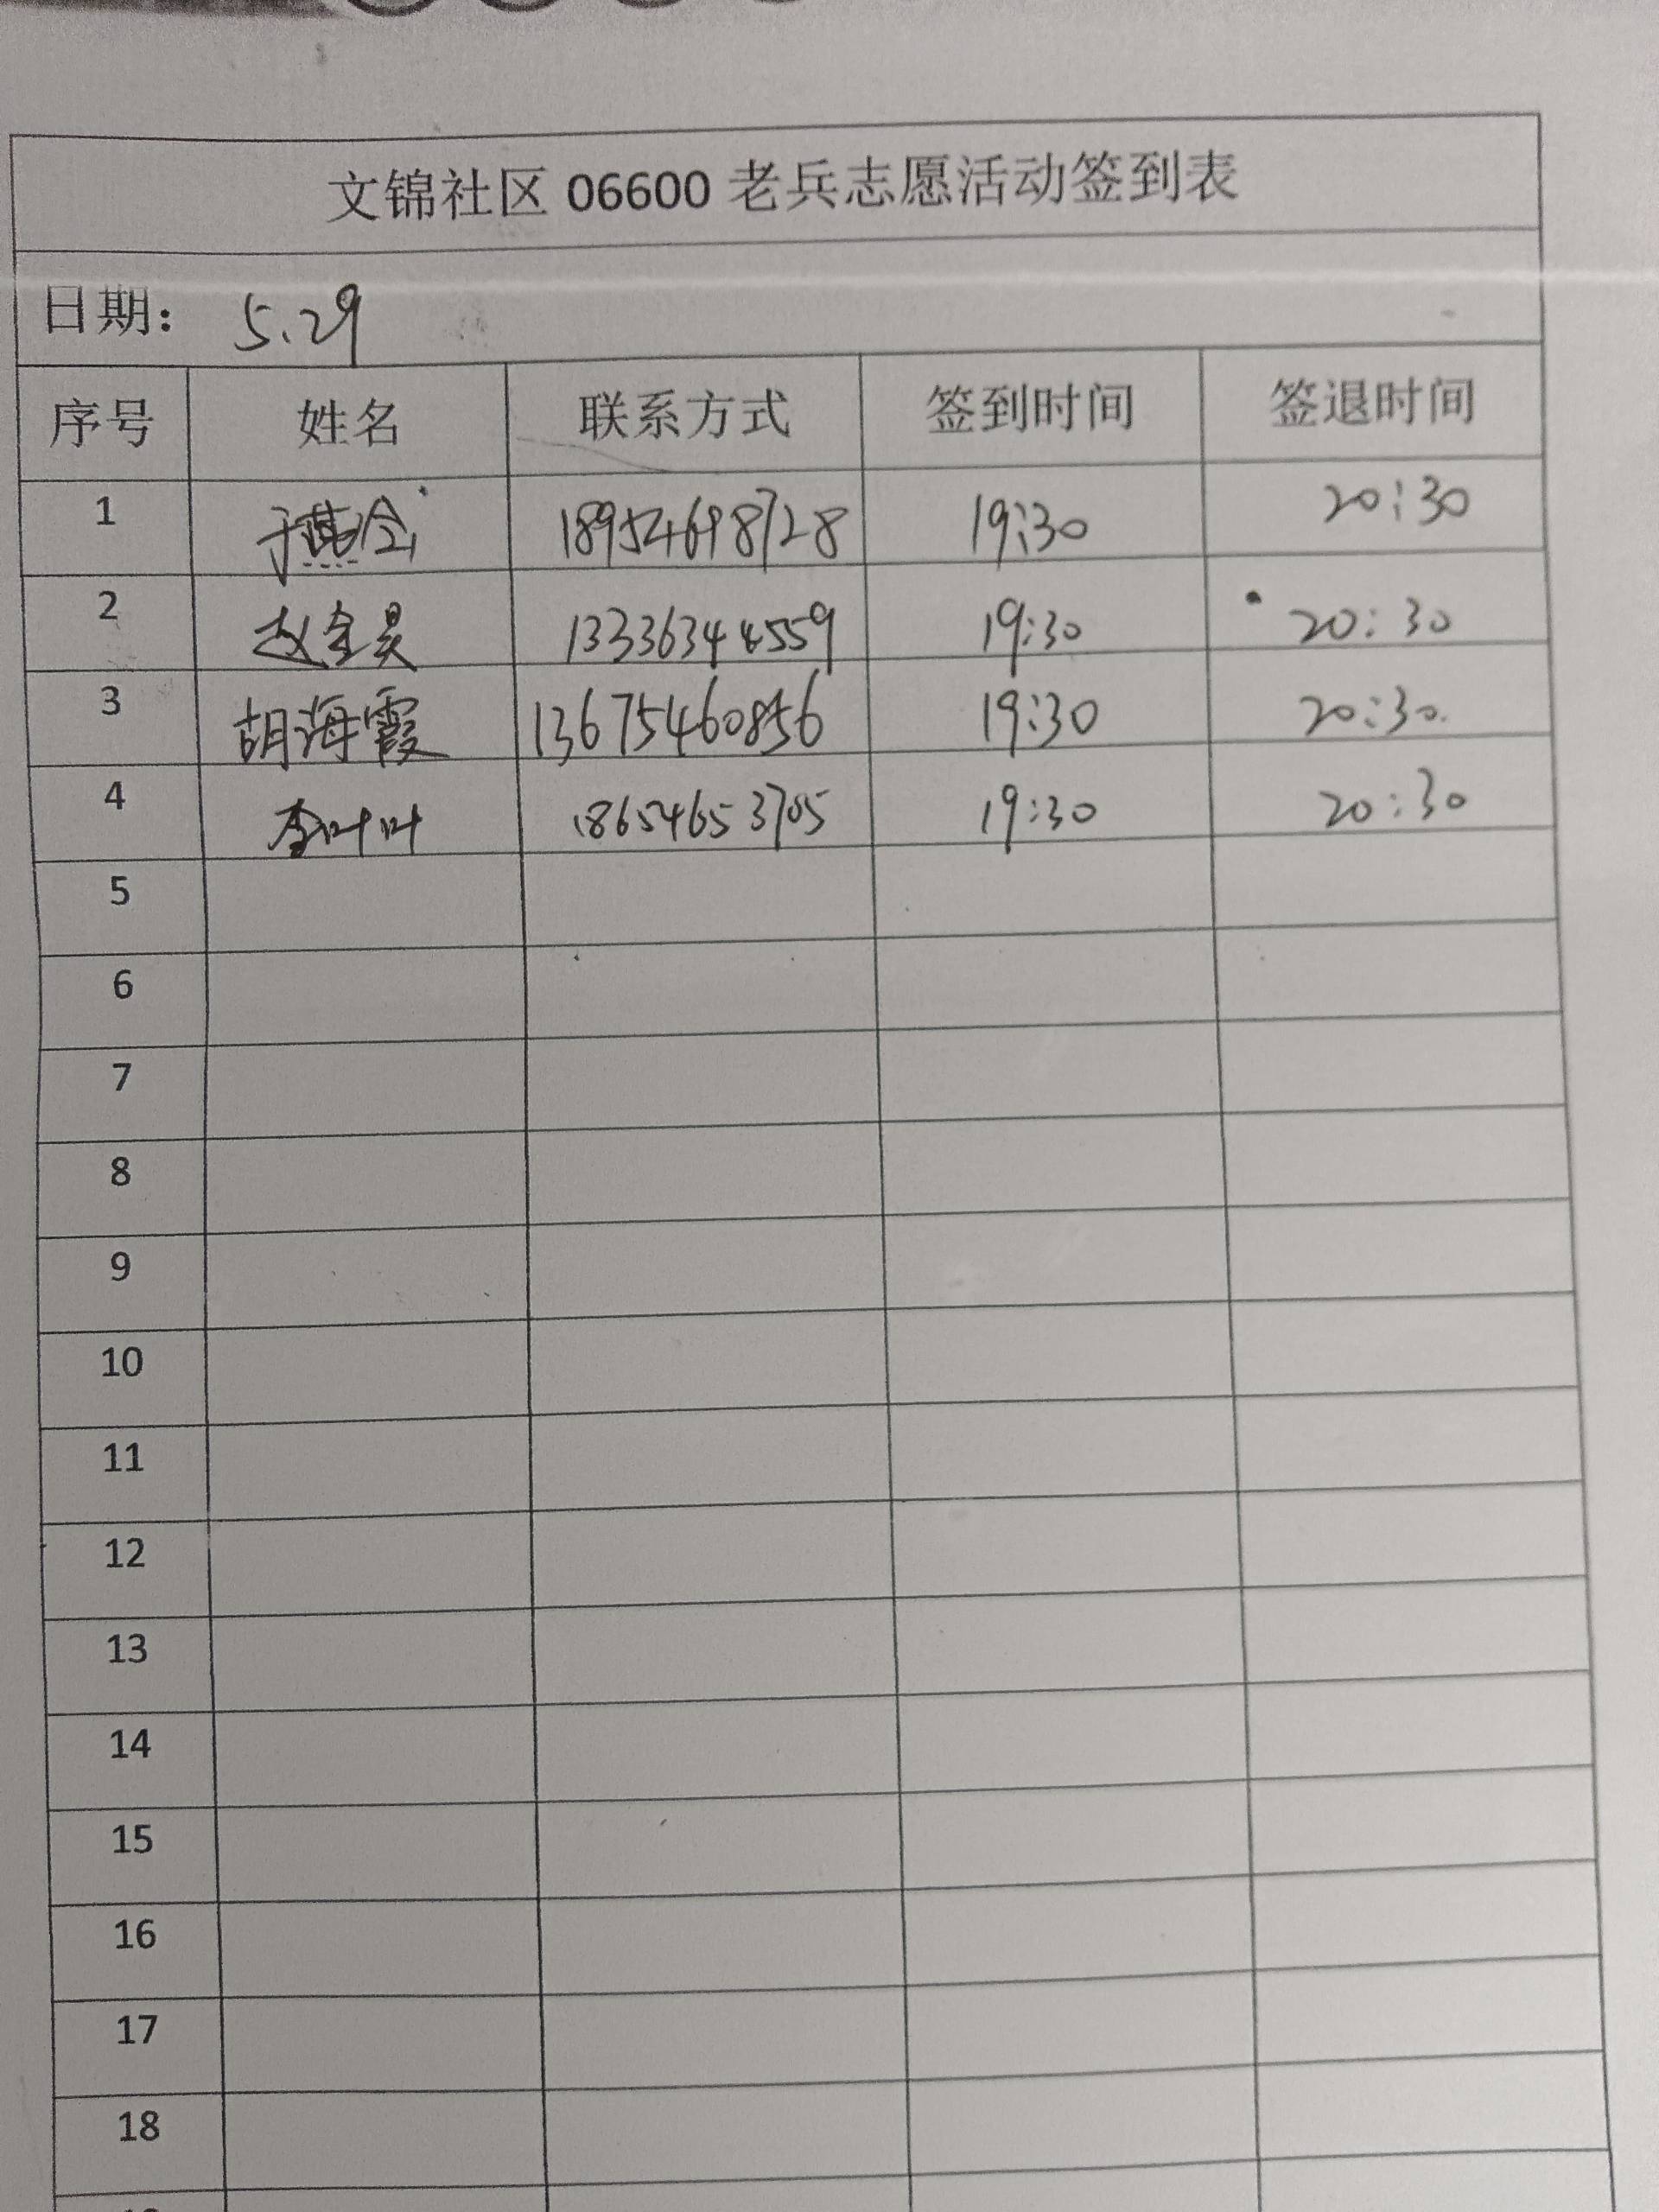 文锦社区 06600 老兵志愿活动签到表
日期： 5.29
序号 姓名 联系方式 签到时间 签退时间
1 于燕 18954698728 19:30 20:30
2 赵金昊 13336344559 19:30 20:30
3 胡海霞 13675460856 19:30 20:30
4 李叶叶 18654653705 19:30 20:30
5
6
7
8
9
10
11
12
13
14
15
16
17
18